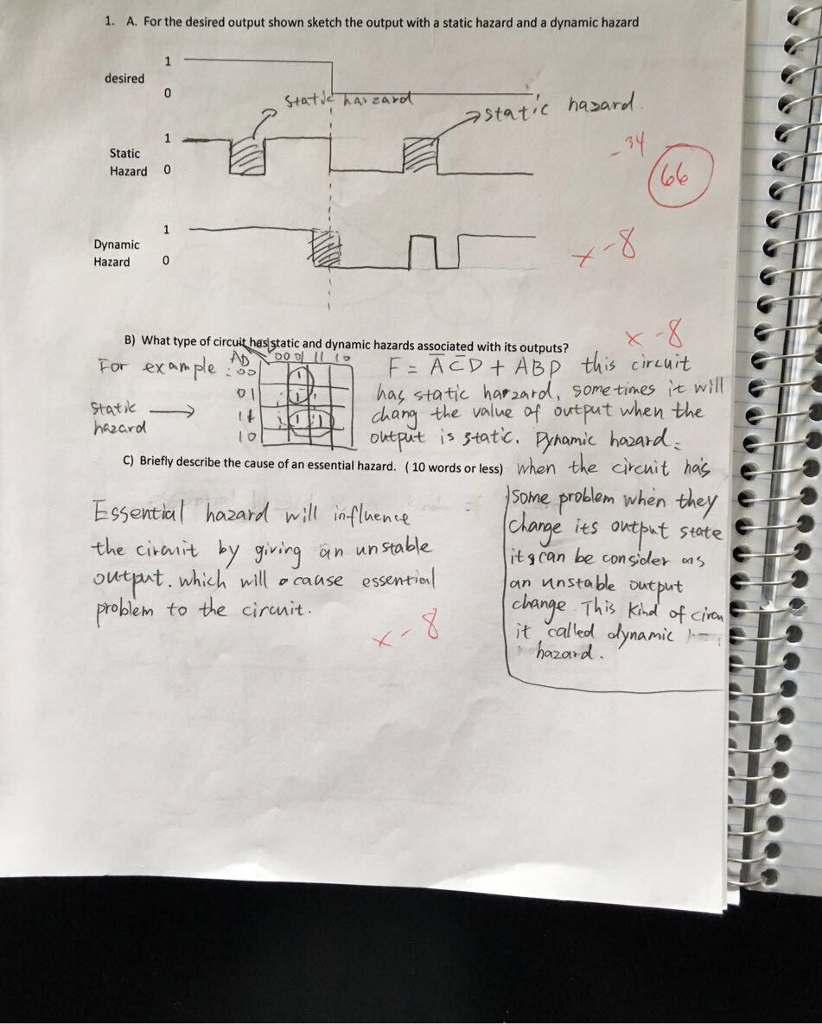 1. A. For the desired output shown sketch the output with a static hazard and a dynamic hazard
1
desired
0
static harzard
static hazard.
1
Static
Hazard 0
-34
66
1
Dynamic
Hazard 0
x -8
B) What type of circuit has static and dynamic hazards associated with its outputs?
x -8
For example :
AD 00 01 11 10
00
01
11
10
1
1
1 1
Static
hazard
F = A̅C̅D + ABD this circuit
has static harzard, sometimes it will
chang the value of output when the
output is static. Dynamic hazard:
C) Briefly describe the cause of an essential hazard. ( 10 words or less)
when the circuit has
some problem when they
change its output state
it can be consider as
an unstable output
change. This kind of circu
it called dynamic
hazard.
Essential hazard will influence
the circuit by giving an unstable
output. which will cause essential
problem to the circuit.
x -8